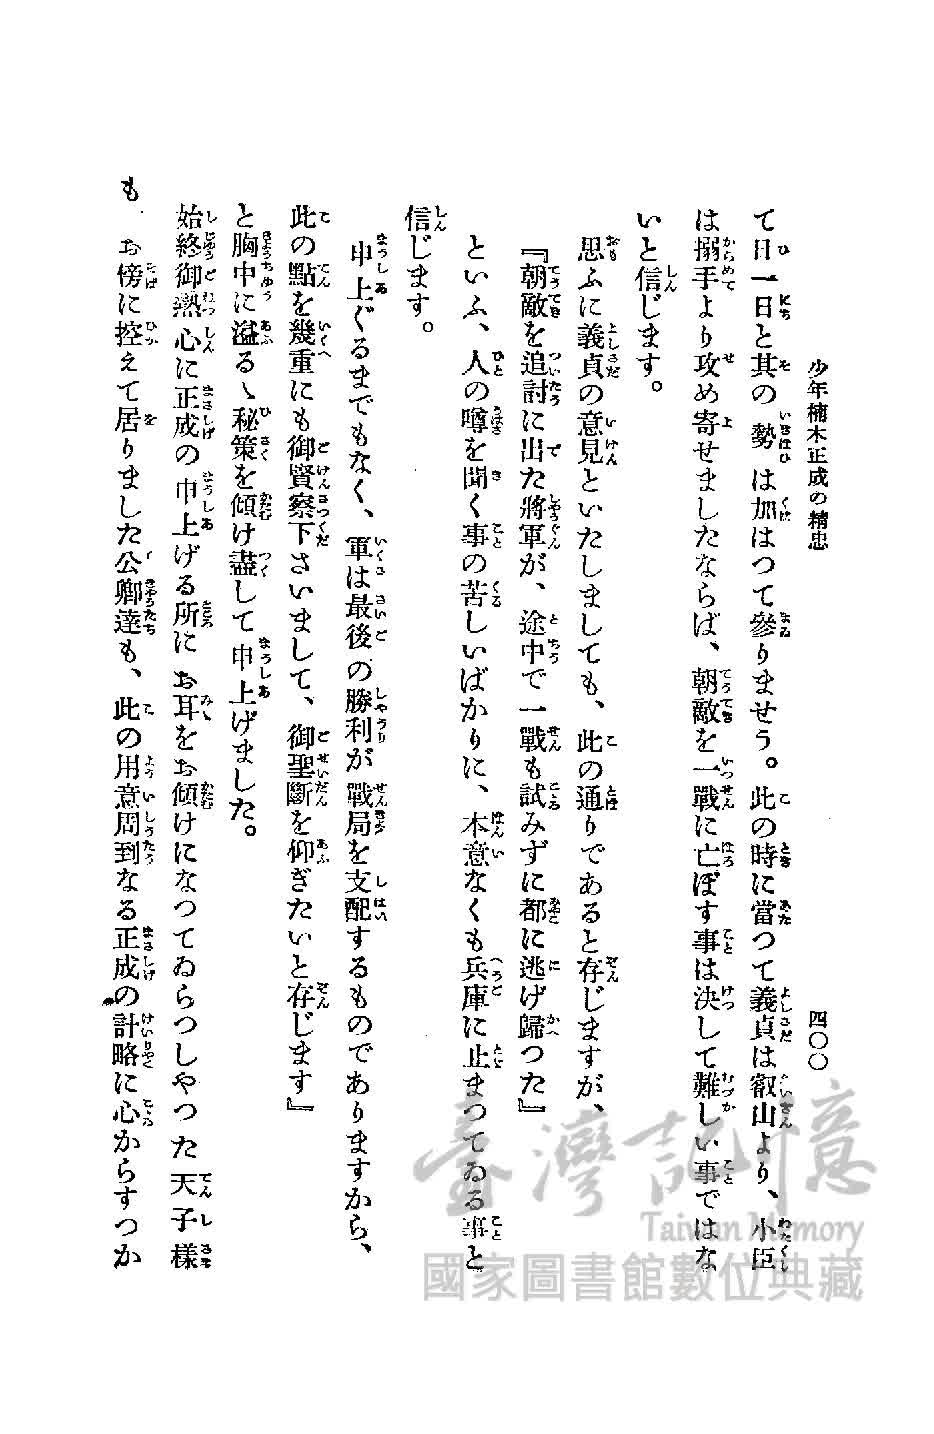 少年楠木正成の精忠
四〇〇
て日一日と其の勢は加はつて參りませう。此の時に當つて義貞は叡山より、小臣
は搦手より攻め寄せましたならば、朝敵を一戰に亡ぼす事は決して難しい事ではな
いと信じます。
思ふに義貞の意見といたしましても、此の通りであると存じますが、
『朝敵を追討に出た將軍が、途中で一戰も試みずに都に逃げ歸つた』
といふ、人の噂を聞く事の苦しいばかりに、本意なくも兵庫に止まつてゐる事と
信じます。
申上ぐるまでもなく、軍は最後の勝利が戰局を支配するものでありますから、
此の點を幾重にも御賢察下さいまして、御聖斷を仰ぎたいと存じます』
と胸中に溢るゝ秘策を傾け盡して申上げました。
始終御熱心に正成の申上げる所にお耳をお傾けになつてゐらつしやつた天子樣
も、お傍に控えて居りました公卿達も、此の用意周到なる正成の計略に心からすつか
臺灣記憶
Taiwan Memory
國家圖書館數位典藏